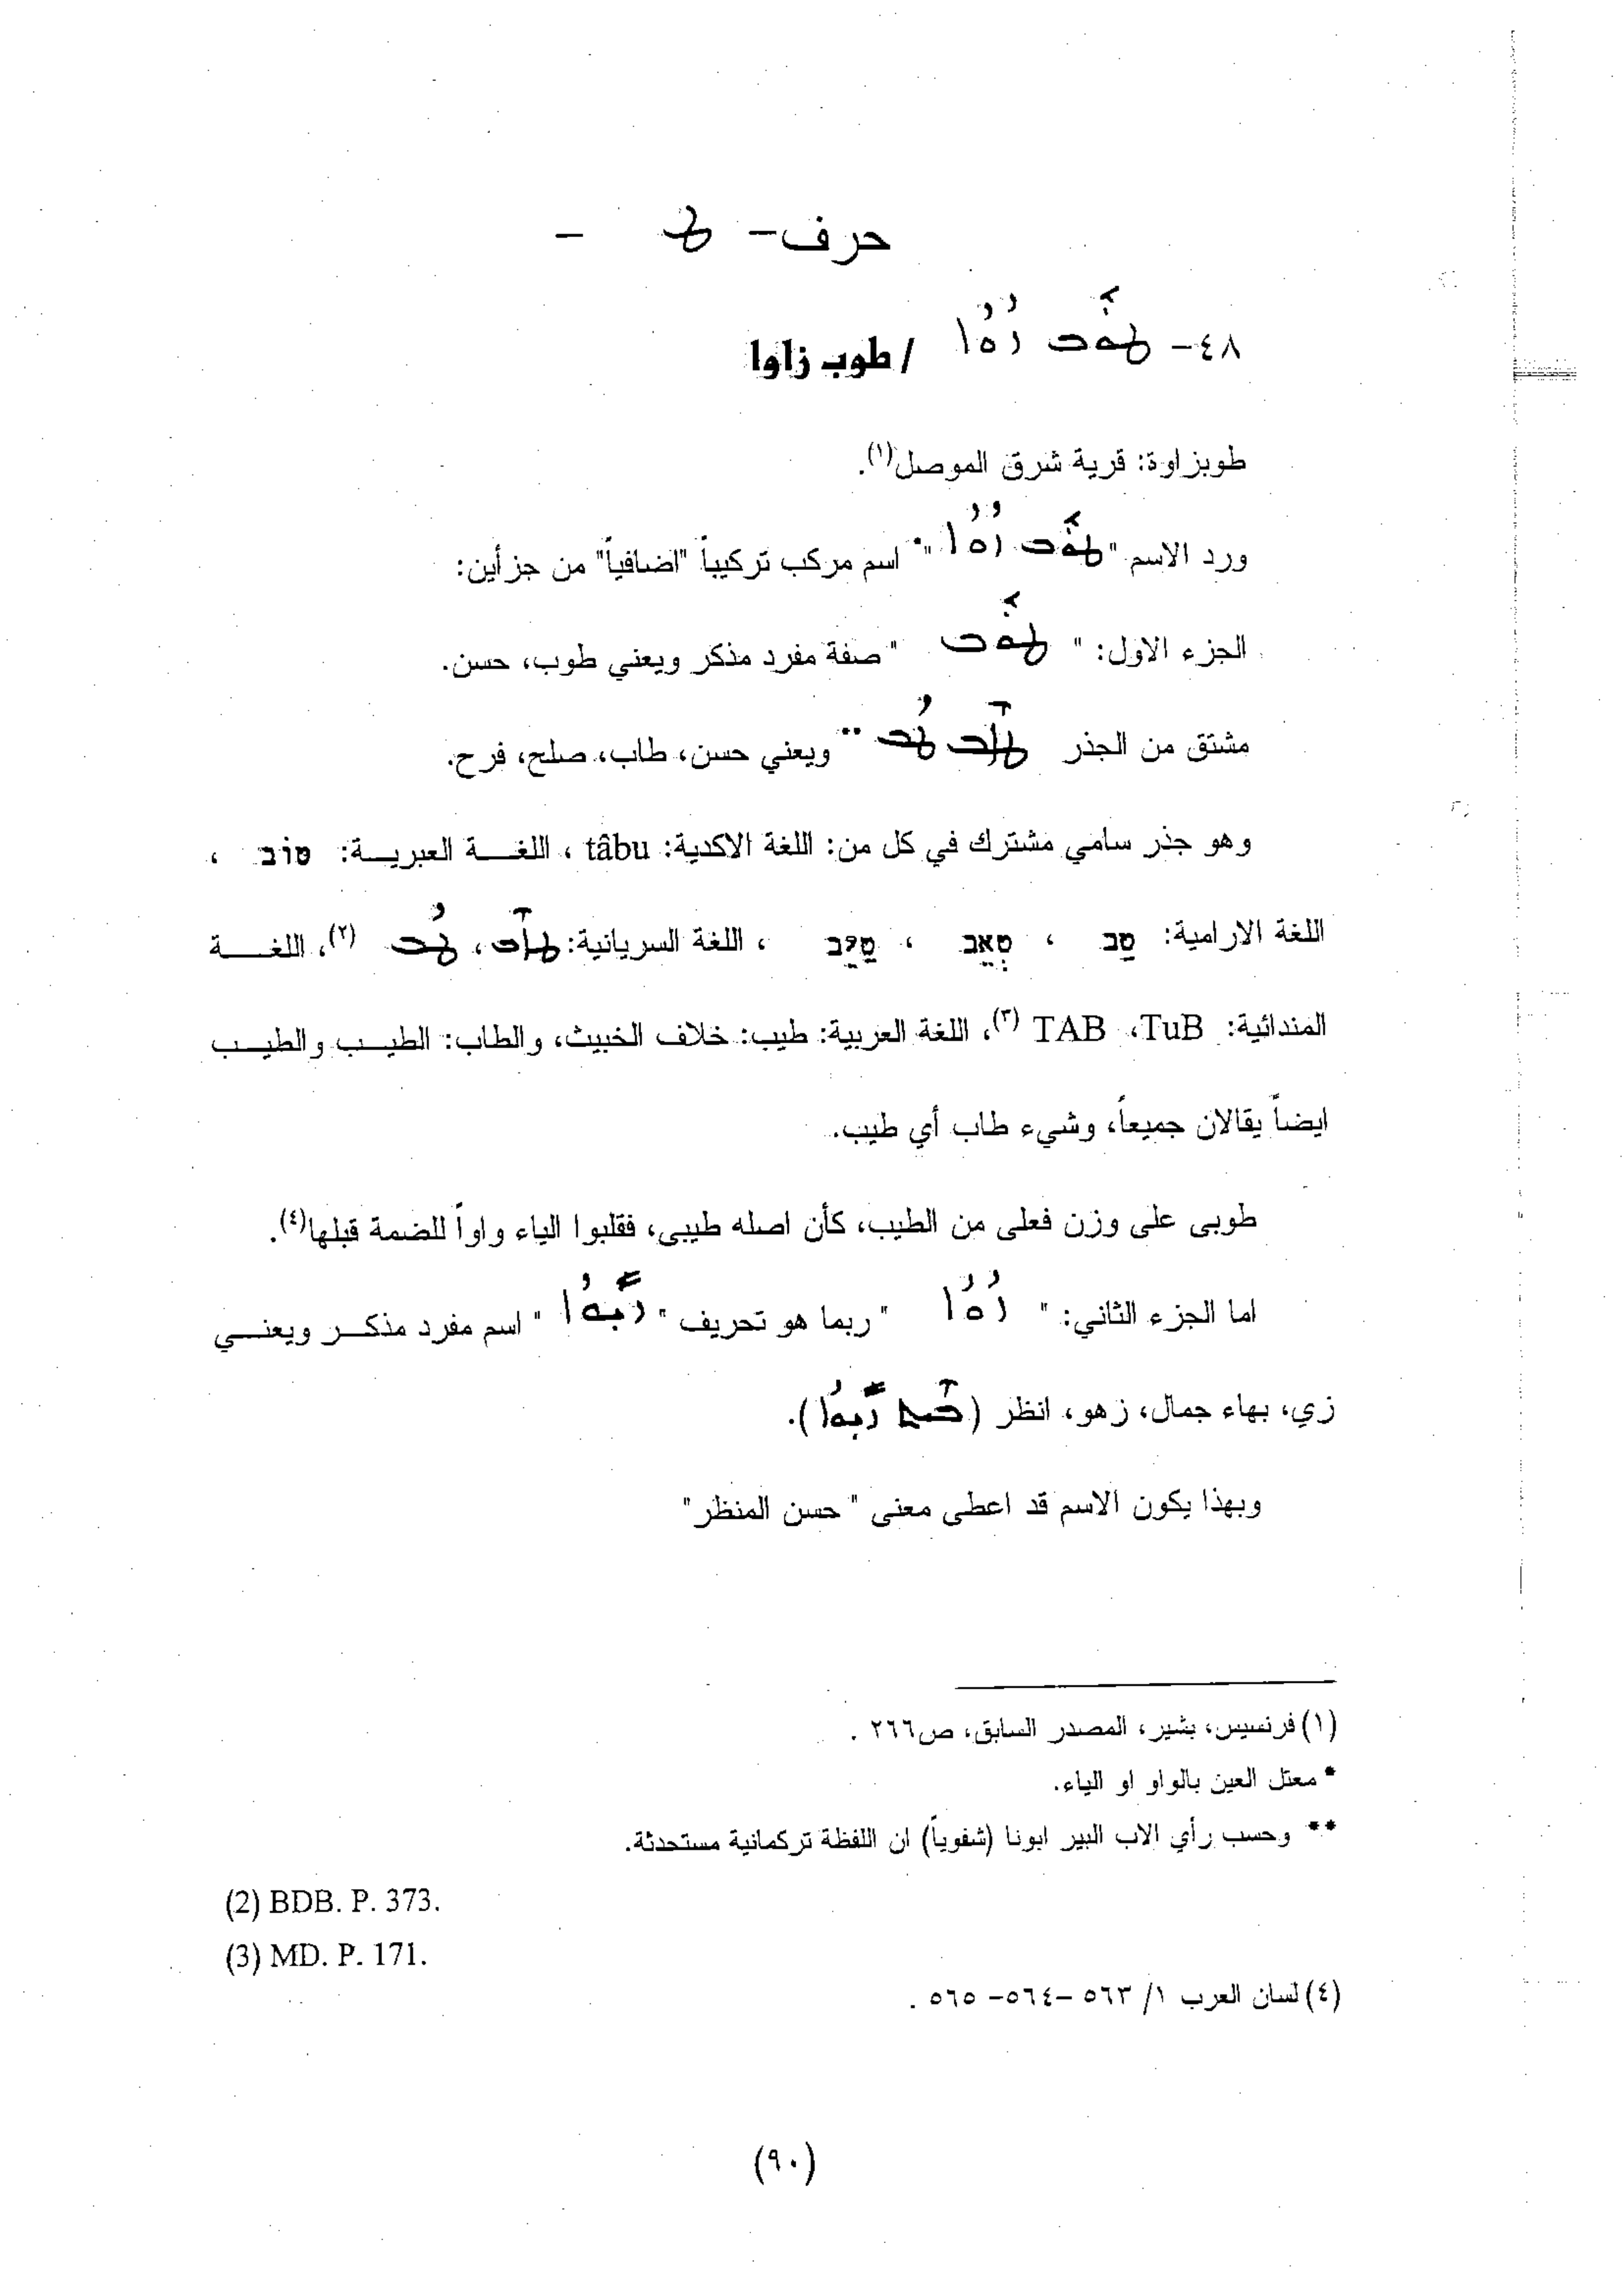 حرف- ܛ -
٤٨- ܛܘܒ ܙܘܐ / طوب زاوا
طوبزاوة: قرية شرق الموصل(١).
ورد الاسم "ܛܘܒ ܙܘܐ"* اسم مركب تركيباً "اضافياً" من جزأين:
الجزء الاول: " ܛܘܒ " صفة مفرد مذكر ويعني طوب، حسن.
مشتق من الجذر ܛܐܒ ܛܒ ** ويعني حسن، طاب، صلح، فرح.
وهو جذر سامي مشترك في كل من: اللغة الاكدية: tâbu ، اللغـــة العبريــة: טוֹב ،
اللغة الارامية: טַב ، טְאֵב ، טַיֵּב ، اللغة السريانية: ܛܐܒ، ܛܒ (٢)، اللغـــة
المندائية: TAB ،TuB (٣)، اللغة العربية: طيب: خلاف الخبيث، والطاب: الطيـب والطيـب
ايضاً يقالان جميعاً، وشيء طاب أي طيب.
طوبى على وزن فعلى من الطيب، كأن اصله طيبى، فقلبوا الياء واواً للضمة قبلها(٤).
اما الجزء الثاني: " ܙܘܐ " ربما هو تحريف "ܙܝܘܐ" اسم مفرد مذكــر ويعنــي
زي، بهاء جمال، زهو، انظر ( ܙܝܘܐ).
وبهذا يكون الاسم قد اعطى معنى " حسن المنظر"
(١) فرنسيس، بشير، المصدر السابق، ص٢٦٦ .
* معتل العين بالواو او الياء.
** وحسب رأي الاب البير ابونا (شفوياً) ان اللفظة تركمانية مستحدثة.
(2) BDB. P. 373.
(3) MD. P. 171.
(٤) لسان العرب ١/ ٥٦٣ –٥٦٤– ٥٦٥ .
(٩٠)